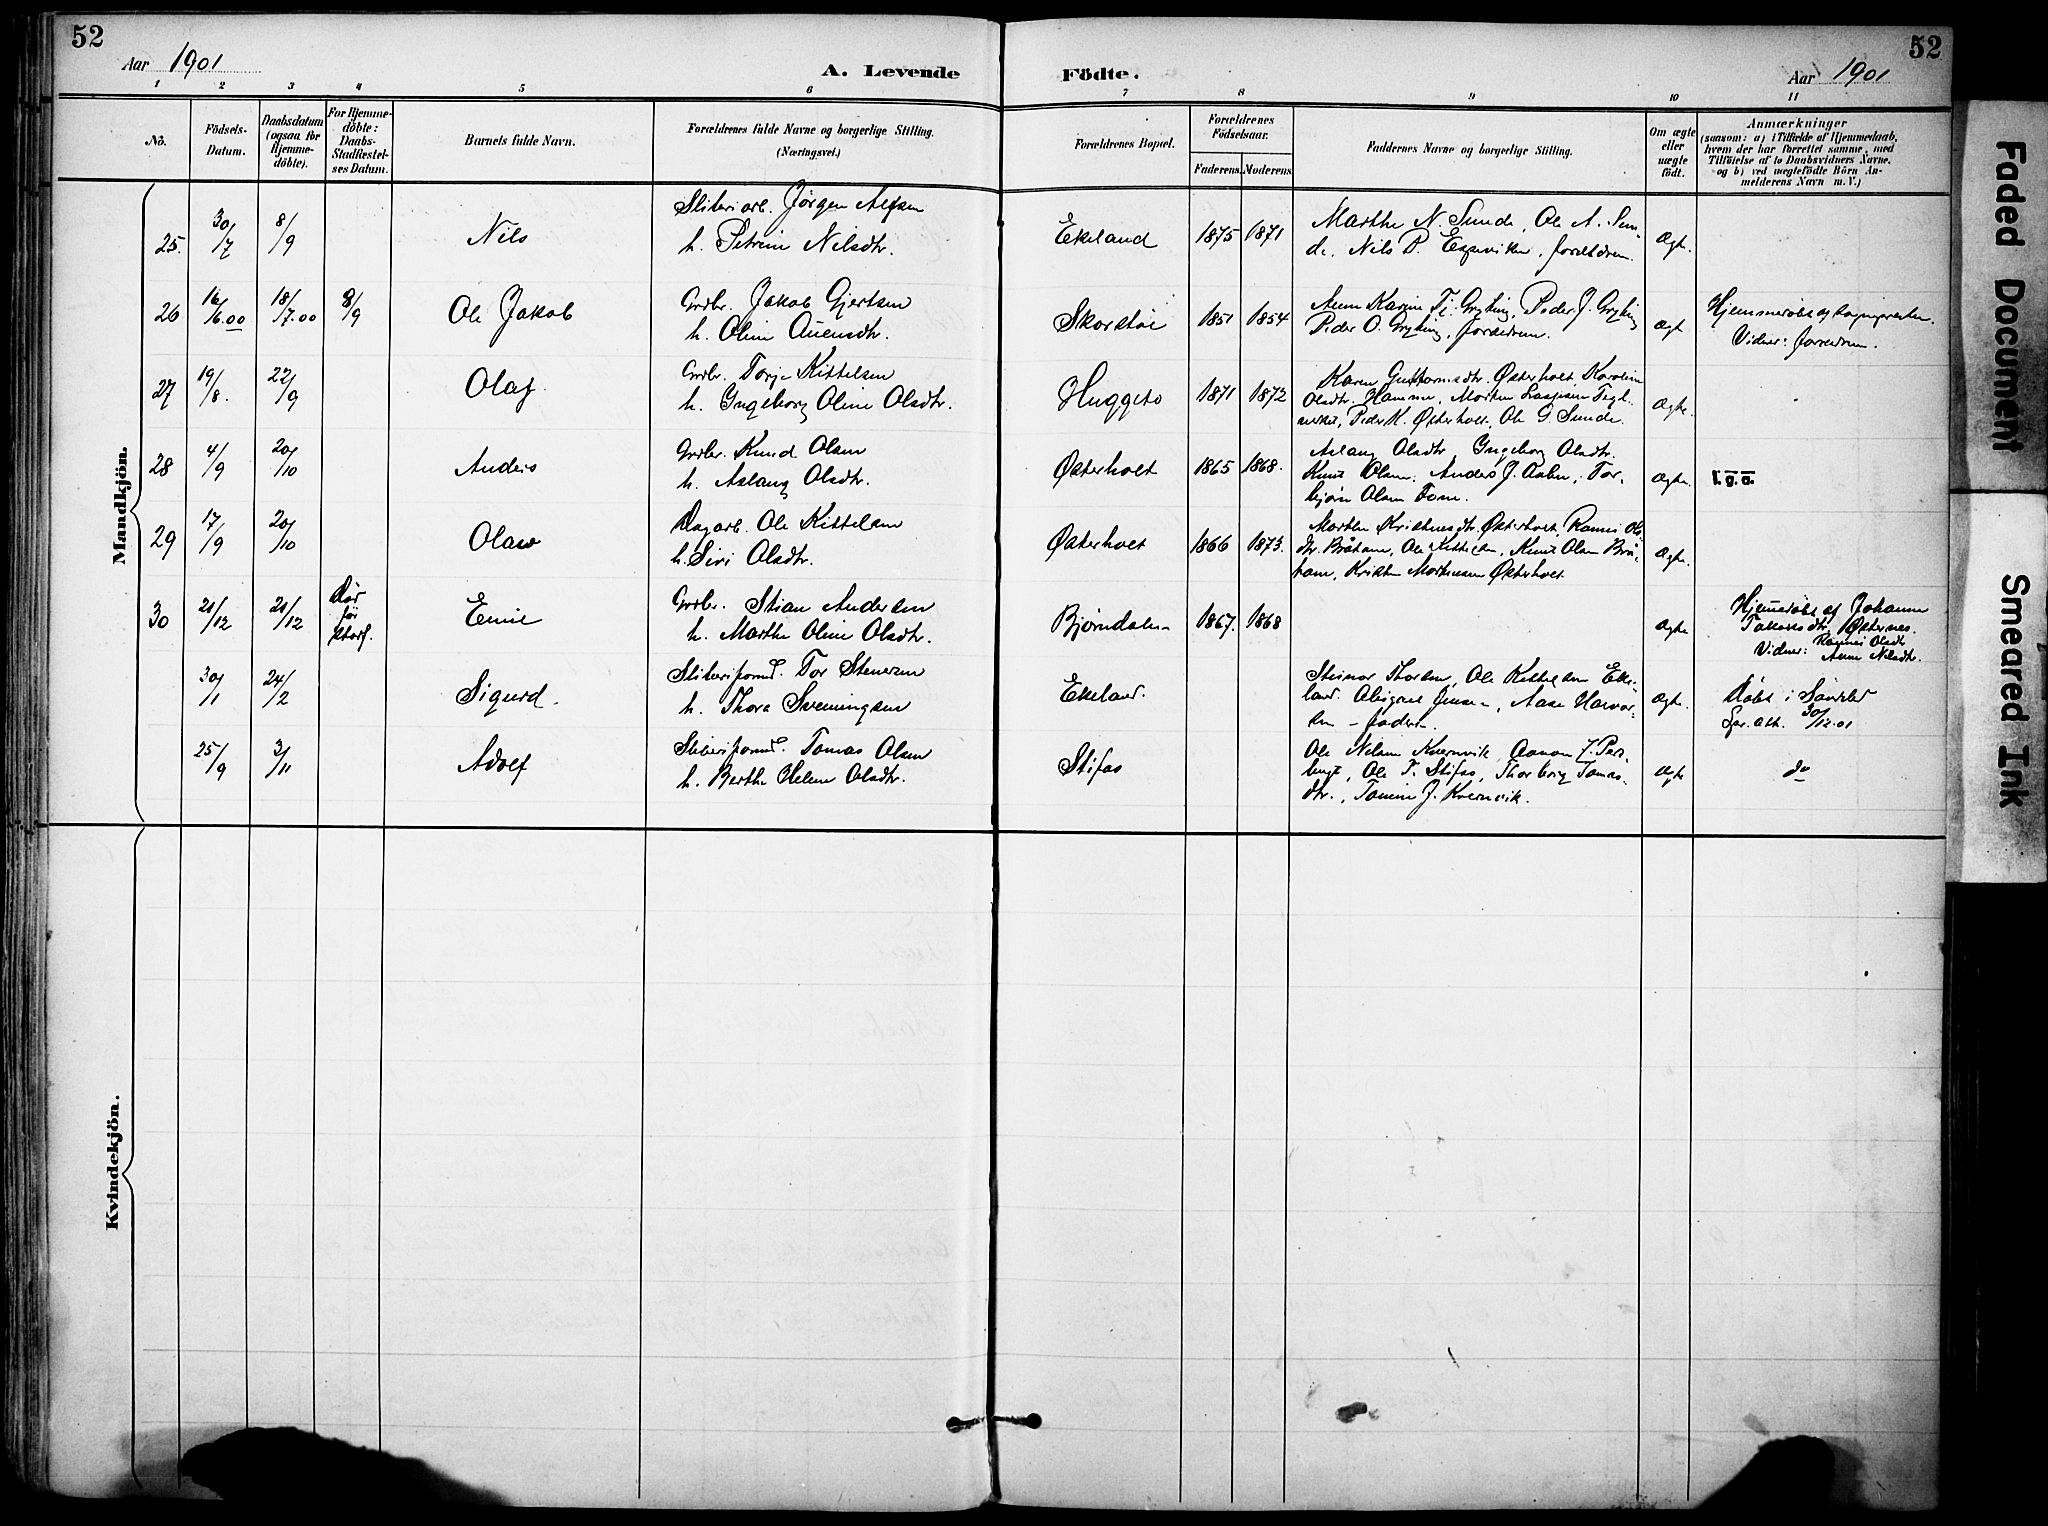 52
Aar 1901
A. Levende
Födte.
Aar 1901
52
1 2 3 4 5 6 7 8 9 10 11
No.
Födsels-
Datum.
Daabsdatum
(ogsaa for
Hjemme-
döbte).
For Hjemme-
döbte:
Daabs-
Stadfæstel-
ses Datum.
Barnets fulde Navn.
Forældrenes fulde Navne og borgerlige Stilling.
(Næringsvei.)
Forældrenes Bopæl.
Forældrenes
Födselsaar.
Faderens. Moderens.
Faddernes Navne og borgerlige Stilling.
Om ægte
eller
uægte
födt.
Anmærkninger
(saasom: a) i Tilfælde af Hjemmedaab,
hvem der har forrettet samme, med
Tilföielse af to Daabsvidners Navne.
og b) ved uægtefödte Börn An-
melderens Navn m. V.)
Mandkjön.
25. 30/7 8/9 Nils
Sliberiarb. Jørgen Alfsen
h. Petrine Nilsdtr.
Ekeland 1875 1871
Marthe N. Sunde, Ole A. Sun-
de, Nils P. Espeviken, forældrene.
Ægte.
26 16/6.00 18/7.00 8/9 Ole Jakob
Grdbr. Jakob Gjertsen
h. Oline Auensdtr.
Skorstøl 1851 1854
Karine Tj. Gryting, Peder J. Gryting
Peder O. Gryting, forældrene.
Ægte
Vidner: forældrene.
27 19/8. 22/9 Olaf
Grdbr. Torje Kittelsen
h. Ingeborg Oline Olsdtr.
Huggeto 1871 1872
Karen Guttormsdtr. Østerholt, Karoline
Olsdtr. Hammer, Morten
Peder K. Østerholt, Ole G. Sunde.
Ægte.
28 4/9 20/10 Anders
Grdbr. Knud Olsen
h. Aslaug Olsdtr.
Østerholt 1865 1868.
Aslaug Olsdtr, Ingeborg Olsdtr.
Knut Olsen, Anders J. Aabu, Tor-
bjørn Olsen
Ægte.
I.g.a.
29 17/9 20/10 Olav
Dagarb. Ole Kittelsen
h. Siri Olsdtr.
Østerholt 1866 1873.
Marthe Østerholt, Ranni Ols-
dtr. Bråtane, Ole Kittelsen, Knut Olsen Brå-
tane, Kristen Mortensen Østerholt.
Ægte.
30 21/12 21/12 Dør
før
stadf.
Emil
Grdbr. Stian Andersen
h. Marthe Oline Olsdtr.
Bjørndalen 1867. 1868
Ægte
Hjemmedøbt af Johanne
Østernes.
Vidner: Ranni Olsdtr
Anne Nilsdtr.
30/1 24/2 Sigurd.
Sliberiformd. Tor Stenersen
h. Thora Svenningsen
Ekeland.
Steinar Thorsen, Ole Kittelsen Eke-
land. Abigael Jensen, Aase Halvor-
sen – faderen.
Ægte.
Døbt i Søndeled
30/12.01
25/9 3/11 Adolf
Sliberiformd. Tomas Olsen
h. Berthe Helene Olsdtr.
Stifos
Ole Nilsen Kvernvik, Aanon J.
Ole T. Stifos, Thorborg Tomas-
dtr., Tomine J. Kvernvik.
Ægte
do
Kvindekjön.
Faded Document
Smeared Ink